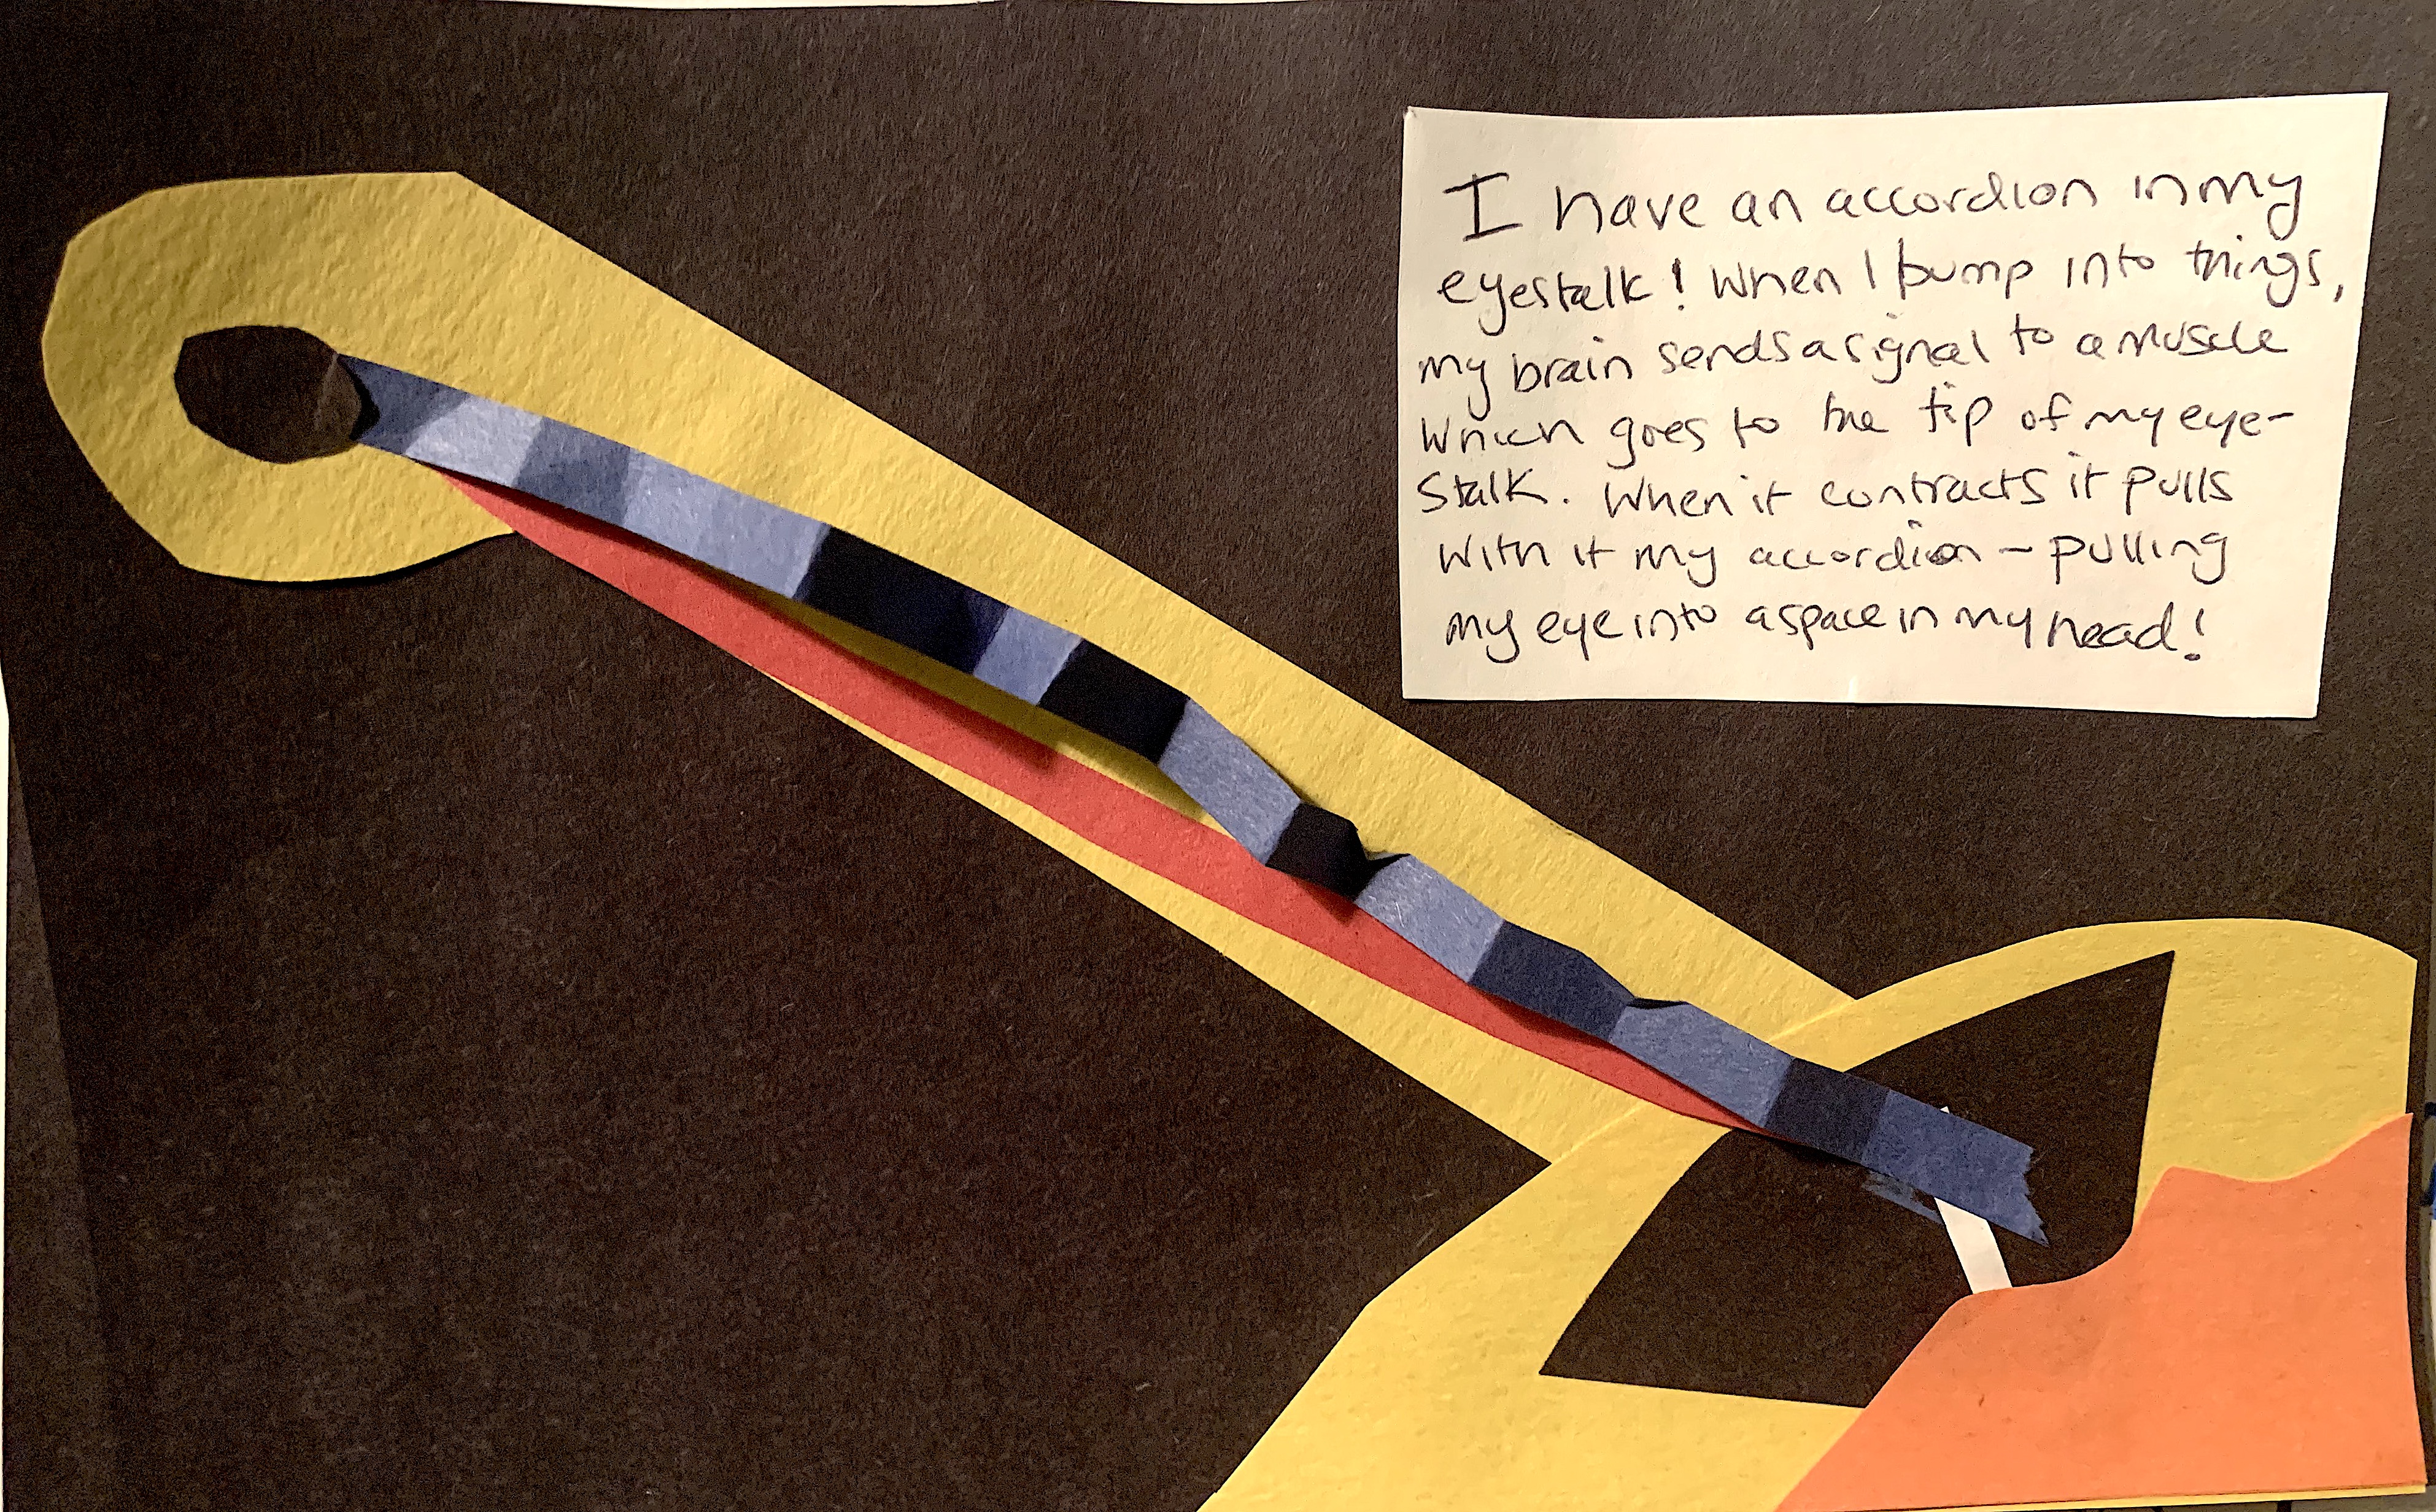 I have an accordion in my
eyestalk! When I bump into things,
my brain sends a signal to a muscle
which goes to the tip of my eye-
stalk. When it contracts it pulls
with it my accordion - pulling
my eye into a space in my head!